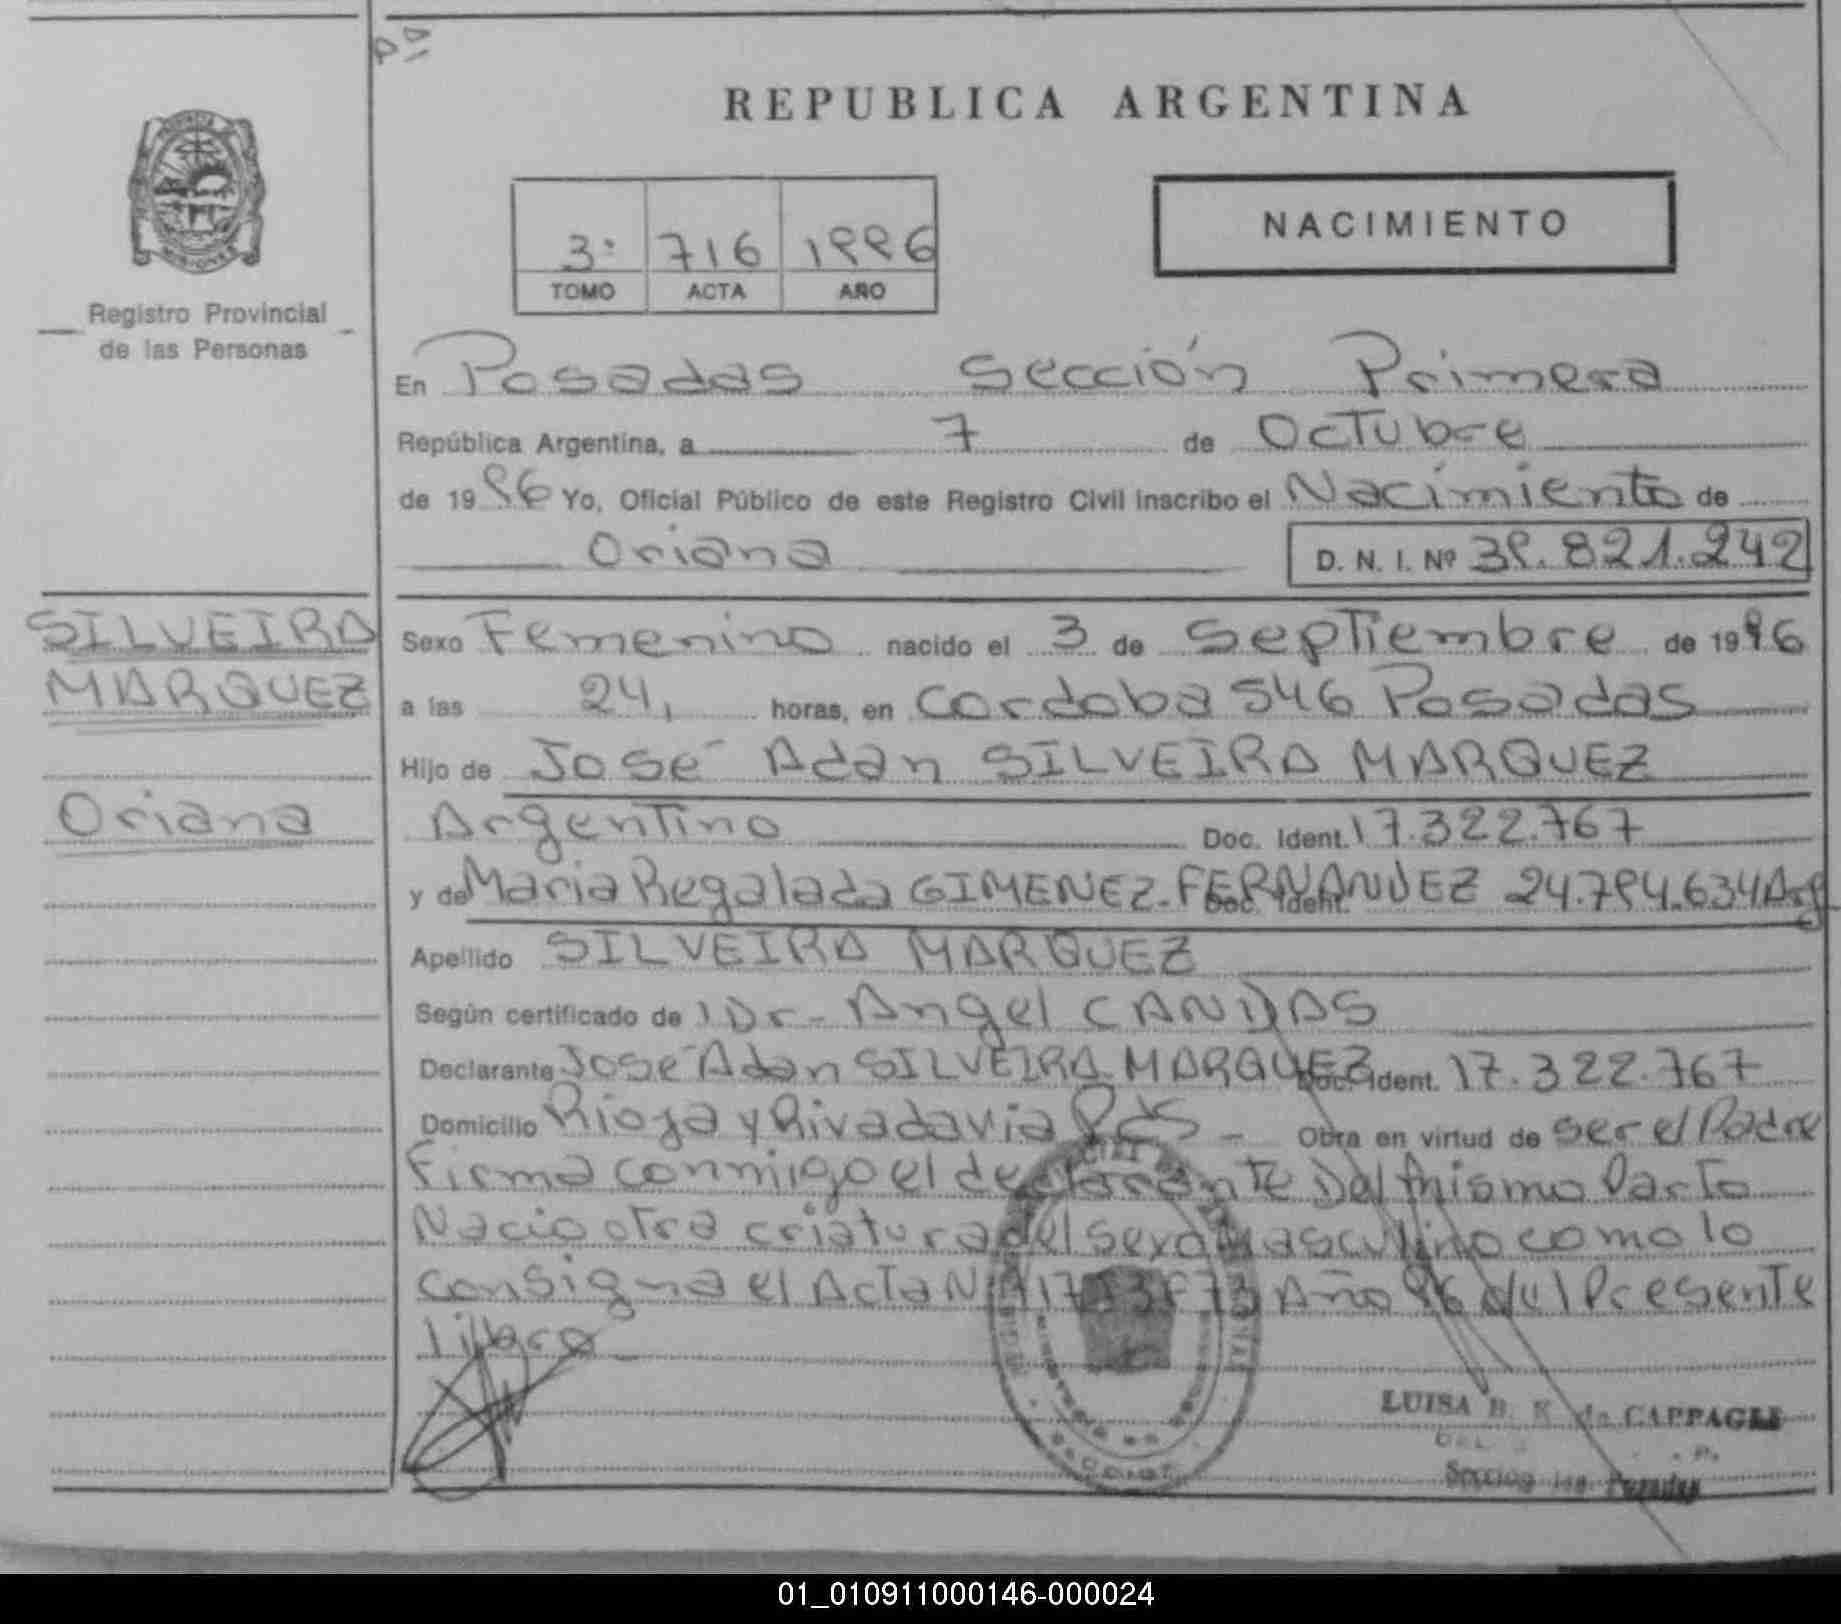 REPUBLICA ARGENTINA
NACIMIENTO
3º 716 1996
TOMO ACTA AÑO
Registro Provincial
de las Personas
En Posadas Sección Primera
República Argentina, a 7 de Octubre
de 1996 Yo, Oficial Público de este Registro Civil inscribo el Nacimiento de
Oriana D. N. I. Nº 39.821.242
SILVEIRA
MARQUEZ
Oriana
Sexo Femenino nacido el 3 de Septiembre de 1996
a las 24, horas, en Cordoba 546 Posadas
Hijo de José Adan SILVEIRA MARQUEZ
Argentino Doc. Ident. 17.322.767
y de Maria Regalada GIMENEZ-FERNANDEZ Doc. Ident. 24.794.634 Arg
Apellido SILVEIRA MARQUEZ
Según certificado de Dr- Angel CANDAS
Declarante José Adan SILVEIRA MARQUEZ Doc. Ident. 17.322.767
Domicilio Rioja y Rivadavia Pdas - Obra en virtud de ser el Padre
Firma conmigo el declarante Del mismo Parto
Nacio otra criatura del sexo Masculino como lo
consigna el Acta Año 96 del Presente
libro-
LUISA B. K. de CAPPAGLI
Sección 1ra. Posadas
01_010911000146-000024